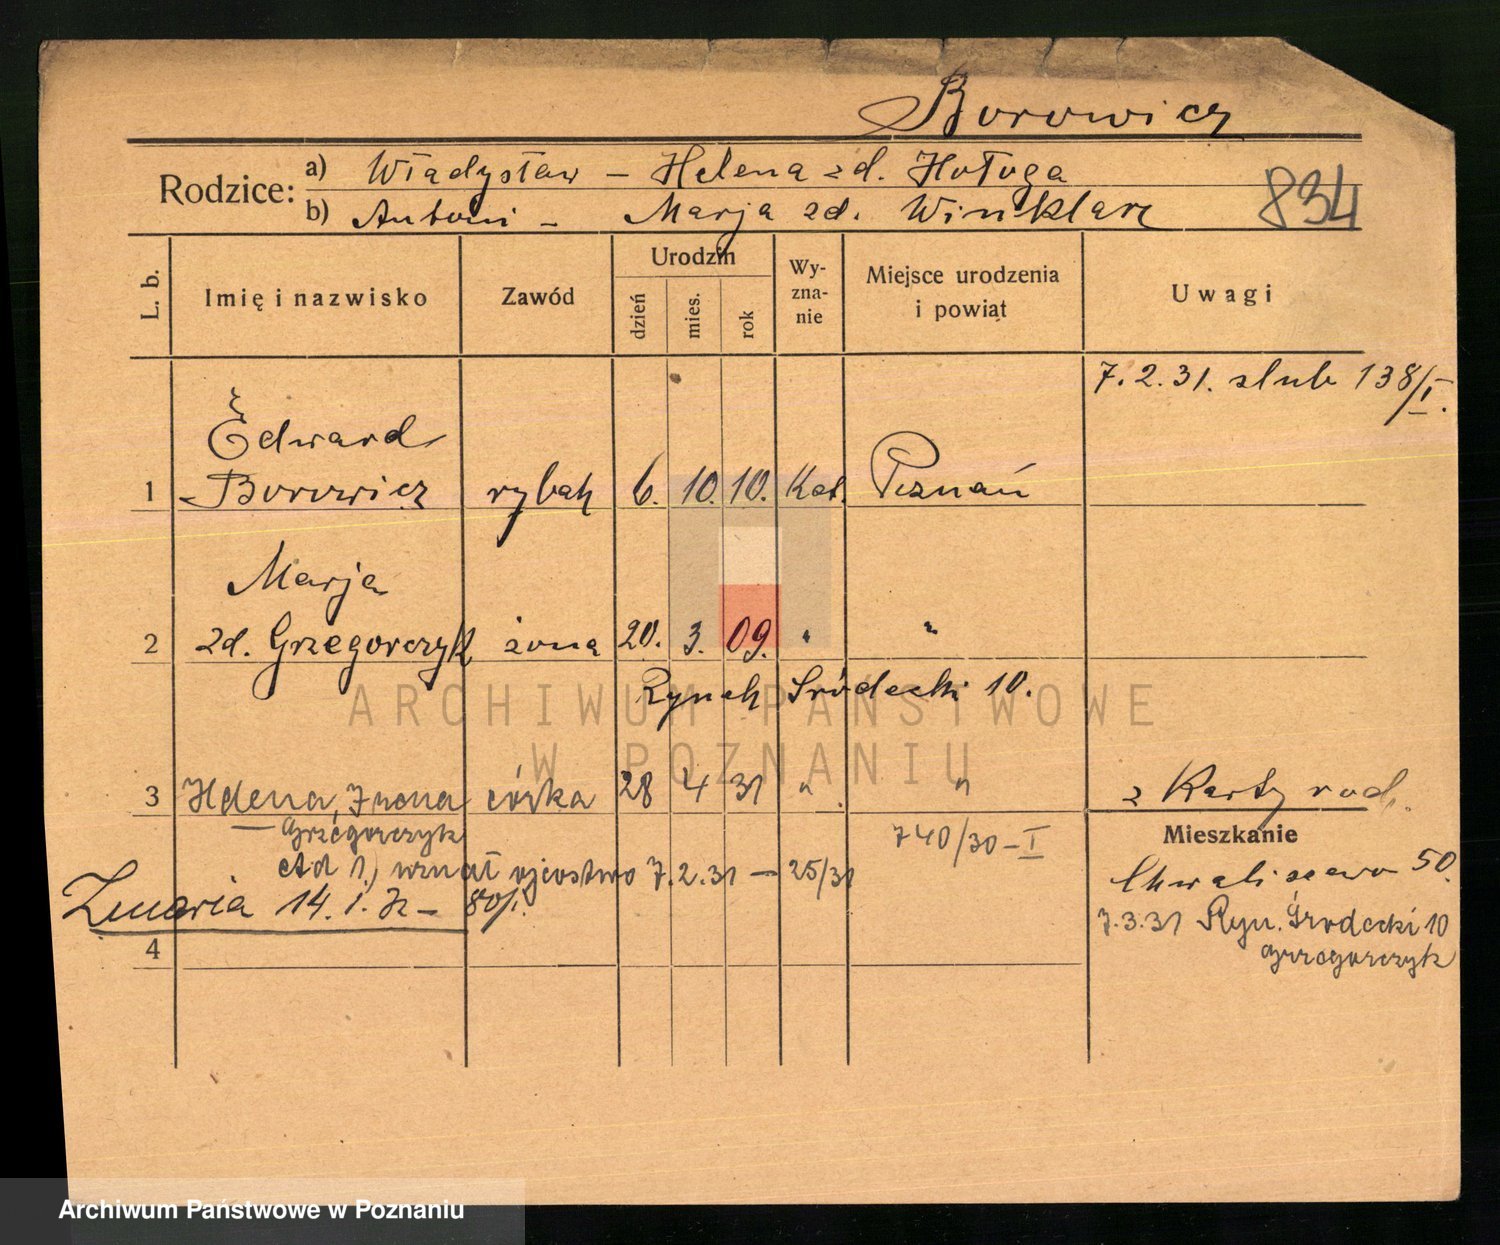 Borowicz
Rodzice: a) Władysław – Helena zd. Hoługa
b) Antoni – Marja zd. Winklarz
834
L. b. Imię i nazwisko Zawód Urodzin dzień mies. rok Wy-zna-nie Miejsce urodzenia i powiat Uwagi
7.2.31. ślub 138/I.
Edward
1 Borowicz rybak 6. 10. 10. Kat. Poznań
Marja
2 zd. Grzegorczyk żona 20. 3. 09. " "
Rynek Śródecki 10.
ARCHIWUM PAŃSTWOWE
W POZNANIU
3 Helena, Irena córka 28 4 31 " " z Karty rod.
– Grzegorczyk 740/30–I
Mieszkanie
Ad 1) uznał ojcostwo 7.2.31 – 25/31
Chwaliszewo 50.
Zmarła 14.1.32 – 80/I.
7.3.31 Ryn. Śródecki 10
Grzegorczyk
4
Archiwum Państwowe w Poznaniu